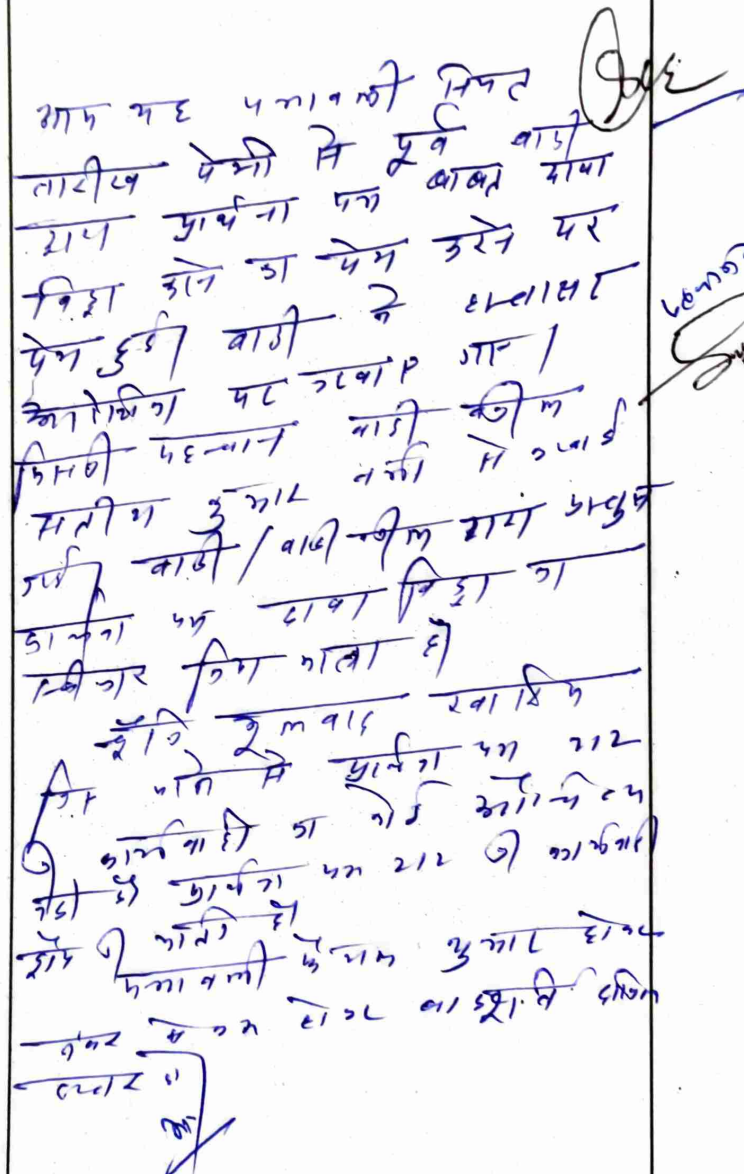 आज यह पत्रावली नियत
तारीख पेशी से पूर्व वादी
द्वारा प्रार्थना पत्र बाबत दावा
विड्रा करने का पेश करने पर
पेश हुई। वादी के हस्ताक्षर
आदेशिका पर करवाए गए।
जिसकी पहचान वादी वकील
सतीश कुमार से करवाई
गई। वादी / वादी वकील द्वारा प्रस्तुत
प्रार्थना पत्र दावा विड्रा का
स्वीकार किया जाता है।
चूँकि मूलवाद खारिज
किए जाने से प्रार्थना पत्र
की कार्यवाही का कोई औचित्य
नहीं है। प्रार्थना पत्र की कार्यवाही
ड्रॉप की जाती है।
पत्रावली फैसल शुमार होकर
नंबर से कम होकर बाद पूर्ति दाखिल
दफ्तर हो।